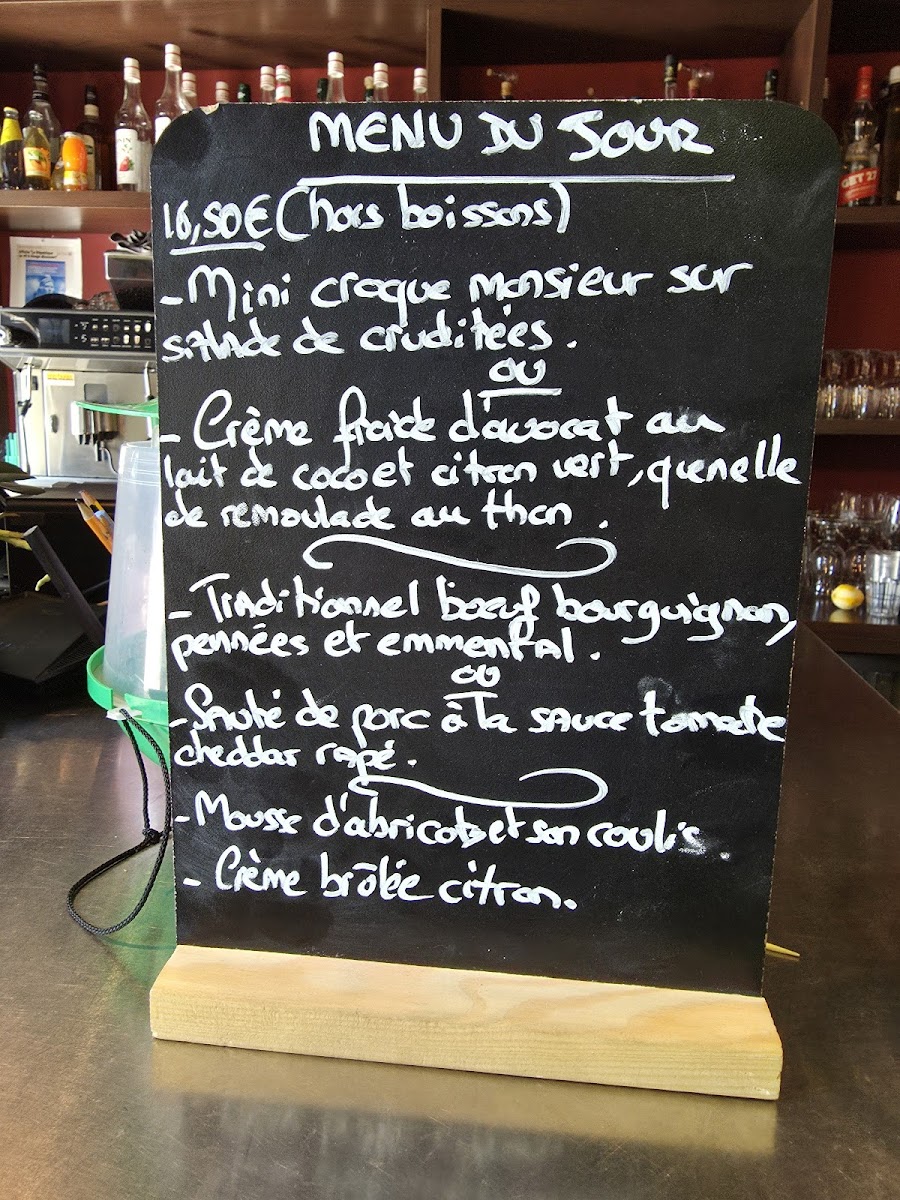 MENU DU JOUR
16,50€ (hors boissons)
- Mini croque monsieur sur
salade de cruditées .
OU
- Crème froide d'avocat au
lait de coco et citron vert, quenelle
de remoulade au thon .
- Traditionnel bœuf bourguignon,
pennées et emmental .
OU
- Sauté de porc à la sauce tomate
cheddar rapé .
- Mousse d'abricots et son coulis .
- Crème brûlée citron.
GET 27